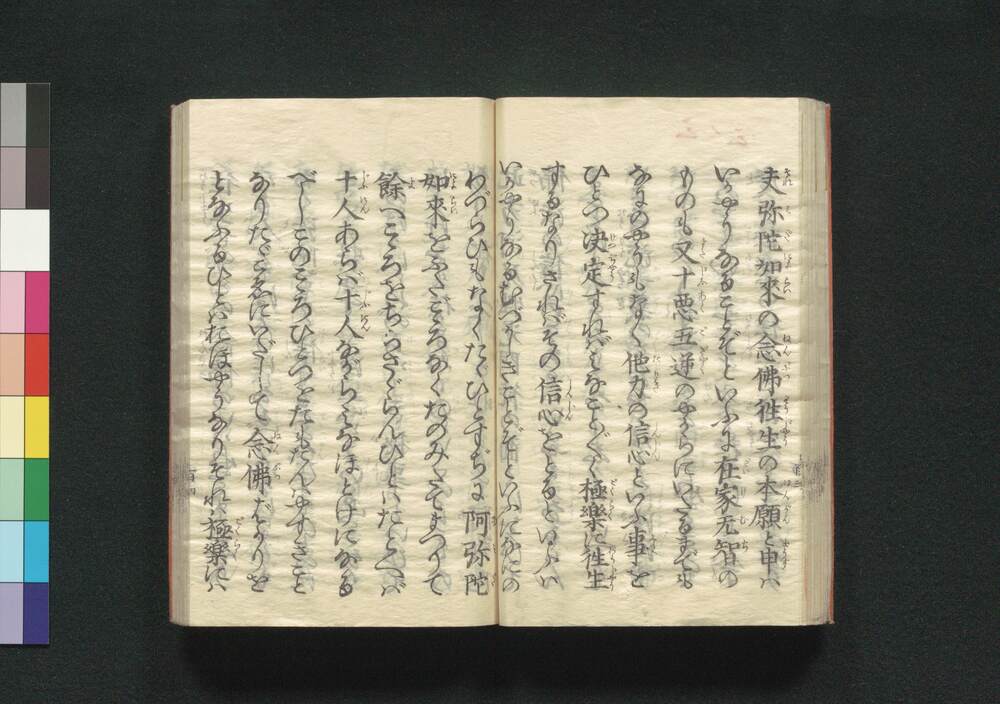 夫弥陀如來の念佛徃生の本願と申ハ
いかやうなることぞといふに在家无智の
ものも又十悪五逆のやからにいたるまでも
なにのやうもなく他力の信心といふ事を
ひとつ决定すれバみなこと〴〵く極樂に徃生
するなりされバその信心をとるといふハ
いかやうなるむづかしきことぞといふになにの
わづらひもなくたゞひとすぢに阿弥陀
如來をふたごゝろなくたのみたてまつりて
餘へこゝろをちらさゞらんひとハたとへバ
十人あらバ十人ながらみなほとけになる
べしこのこゝろひとつをたもたんハやすきこと
なりたゞこゑにいだして念佛ばかりを
となふるひとハおほやうなりそれハ極樂にハ
百四